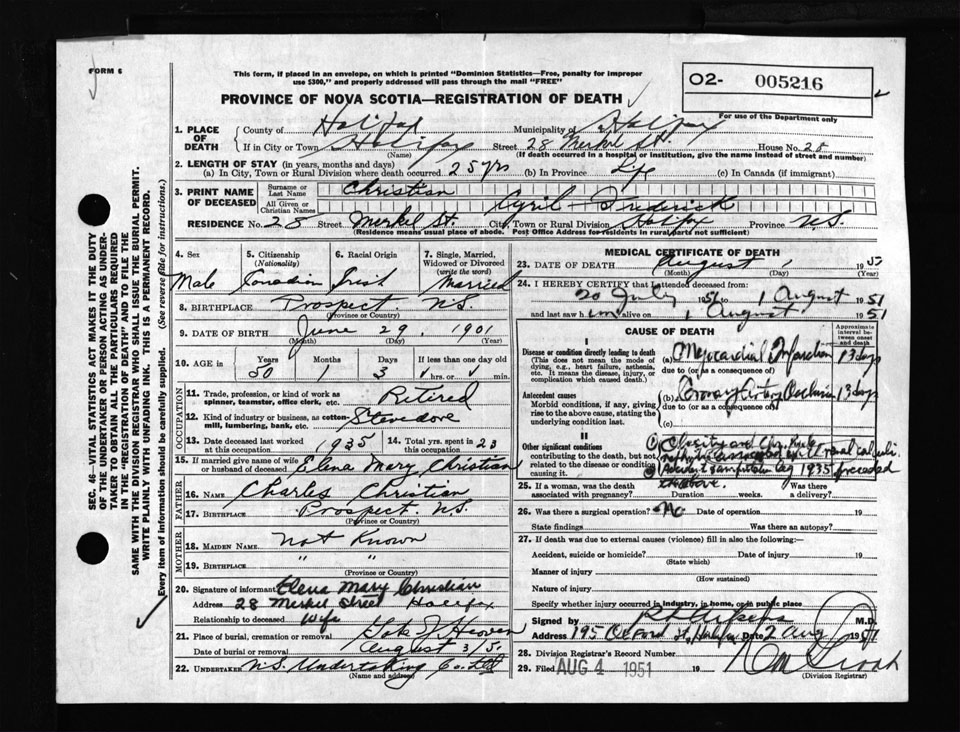 FORM 6
This form, if placed in an envelope, on which is printed "Dominion Statistics—Free, penalty for improper
use $300," and properly addressed will pass through the mail "FREE"
O2- 005216
For use of the Department only
PROVINCE OF NOVA SCOTIA—REGISTRATION OF DEATH
1. PLACE OF DEATH
County of Halifax Municipality of Halifax
If in City or Town Halifax Street 28 Merkel St. House No. 28
(Name) (If death occurred in a hospital or institution, give the name instead of street and number)
2. LENGTH OF STAY (in years, months and days)
(a) In City, Town or Rural Division where death occurred 25 yrs (b) In Province Life (c) In Canada (if immigrant)
3. PRINT NAME OF DECEASED
Surname or Last Name Christian
All Given or Christian Names Cyril - Frederick
RESIDENCE No. 28 Street Merkel St. City, Town or Rural Division Halifax Province N.S.
(Residence means usual place of abode. Post Office Address for residents in rural parts not sufficient)
4. Sex 5. Citizenship (Nationality) 6. Racial Origin 7. Single, Married, Widowed or Divorced (write the word)
Male Canadian Irish Married
8. BIRTHPLACE Prospect. N.S.
(Province or Country)
9. DATE OF BIRTH June 29, 1901
(Month) (Day) (Year)
10. AGE in Years Months Days If less than one day old
50 1 3 hrs. or min.
OCCUPATION
11. Trade, profession, or kind of work as spinner, teamster, office clerk, etc. Retired
12. Kind of industry or business, as cotton-mill, lumbering, bank, etc. Stevedore
13. Date deceased last worked at this occupation 1935 14. Total yrs. spent in 23 this occupation
15. If married give name of wife or husband of deceased Elena Mary Christian
FATHER
16. NAME Charles Christian
17. BIRTHPLACE Prospect. N.S.
(Province or Country)
MOTHER
18. MAIDEN NAME Not Known
19. BIRTHPLACE " "
(Province or Country)
20. Signature of informant Elena Mary Christian
Address 28 Merkel Street Halifax
Relationship to deceased Wife
21. Place of burial, cremation or removal Gate of Heaven
Date of burial or removal August 3/51
22. UNDERTAKER N.S. Undertaking Co. Ltd
(Name and address)
MEDICAL CERTIFICATE OF DEATH
23. DATE OF DEATH August 1 195
(Month) (Day) (Year)
24. I HEREBY CERTIFY that I attended deceased from:
20 July 1951 to 1 August 1951
and last saw him alive on 1 August 1951
CAUSE OF DEATH
Approximate interval between onset and death
I
Disease or condition directly leading to death
(This does not mean the mode of dying, e.g., heart failure, asthenia, etc. It means the disease, injury, or complication which caused death.)
(a) Myocardial Infarction 13 days
due to (or as a consequence of)
Antecedent causes
Morbid conditions, if any, giving rise to the above cause, stating the underlying condition last.
(b) Coronary Artery Occlusion 13 days
due to (or as a consequence of)
(c)
II
Other significant conditions
contributing to the death, but not related to the disease or condition causing it.
(1) Obesity and Chr. associated with renal calculi.
(2) Accident & amputation leg 1935 preceded
the above.
25. If a woman, was the death associated with pregnancy? Duration weeks. Was there a delivery?
26. Was there a surgical operation? No Date of operation 19
State findings Was there an autopsy?
27. If death was due to external causes (violence) fill in also the following:—
Accident, suicide or homicide? Date of injury 19
(State which)
Manner of injury
(How sustained)
Nature of injury
Specify whether injury occurred in industry, in home, or in public place
Signed by M.D.
Address 195 Oxford St, Halifax Date 2 Aug 1951
28. Division Registrar's Record Number
29. Filed AUG 4 1951 19
(Division Registrar)
SEC. 46—VITAL STATISTICS ACT MAKES IT THE DUTY
OF THE UNDERTAKER OR PERSON ACTING AS UNDER-
TAKER TO OBTAIN ALL THE PARTICULARS REQUIRED
IN THE "REGISTRATION OF DEATH" AND TO FILE THE
SAME WITH THE DIVISION REGISTRAR WHO SHALL ISSUE THE BURIAL PERMIT.
WRITE PLAINLY WITH UNFADING INK. THIS IS A PERMANENT RECORD.
Every item of information should be carefully supplied. (See reverse side for instructions.)